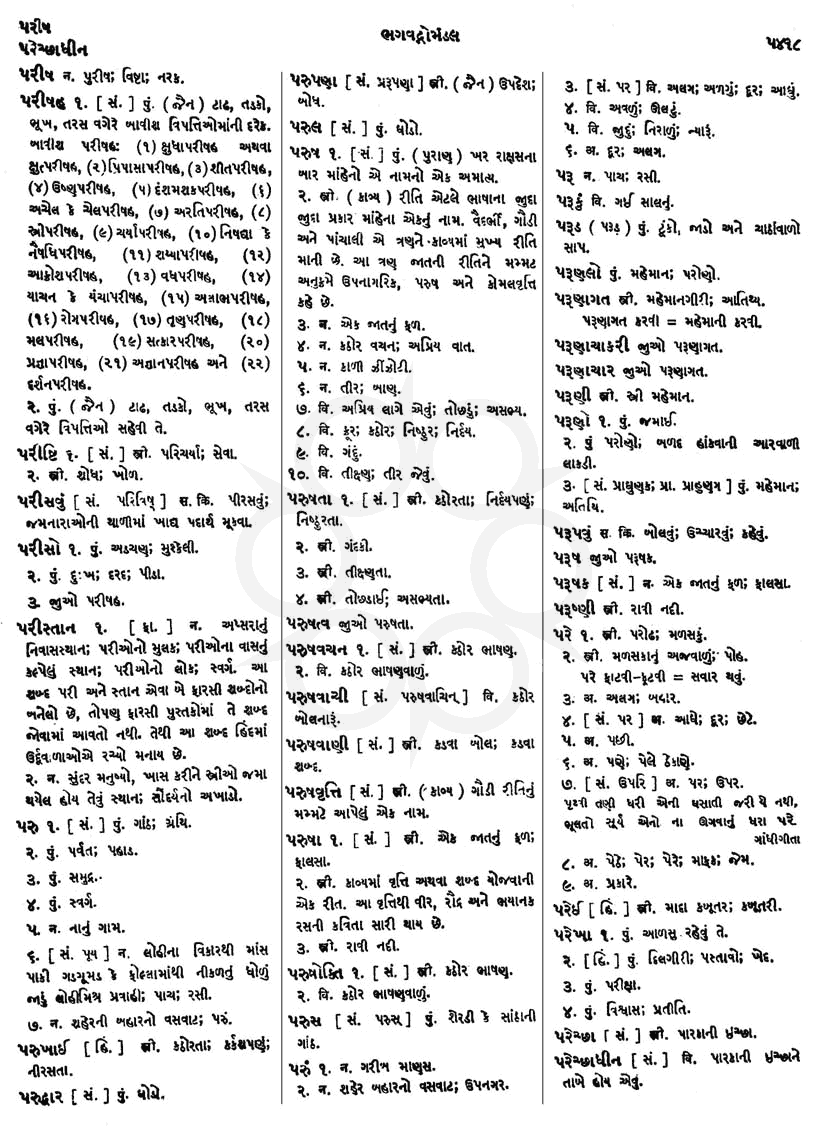 પરીષ
પરેચ્છાધીન
ભગવદ્ગોમંડલ
૫૪૧૮
પરીષ ન. પુરીષ; વિષ્ટા; નરક.
પરીષહ ૧. [ સં. ] પું. (જૈન) ટાઢ, તડકો,
ભૂખ, તરસ વગેરે બાવીશ વિપત્તિઓમાંની દરેક.
બાવીશ પરીષહઃ (૧) ક્ષુધાપરીષહ અથવા
ક્ષુત્પરીષહ, (૨) પ્રિપાસાપરીષહ, (૩) શીતપરીષહ,
(૪) ઉષ્ણુપરીષહ, (૫) દંશમશકપરીષહ, (૬)
અચેલ કે ચેલપરીષહ, (૭) અરતિપરીષહ, (૮)
સ્ત્રીપરીષહ, (૯) ચર્યાપરીષહ, (૧૦) નિષદ્યા કે
નૈષધિપરીષહ, (૧૧) શય્યાપરીષહ, (૧૨)
આક્રોશપરીષહ, (૧૩) વધપરીષહ, (૧૪)
યાચન કે યંચાપરીષહ, (૧૫) અલાભપરીષહ,
(૧૬) રોગપરીષહ, (૧૭) તૃણપરીષહ, (૧૮)
મલપરીષહ, (૧૯) સત્કારપરીષહ, (૨૦)
પ્રજ્ઞાપરીષહ, (૨૧) અજ્ઞાનપરીષહ અને (૨૨)
દર્શનપરીષહ.
૨. પું. (જૈન) ટાઢ, તડકો, ભૂખ, તરસ
વગેરે વિપત્તિઓ સહેવી તે.
પરીષ્ટિ ૧. [ સં. ] સ્ત્રી. પરિચર્યા; સેવા.
૨. સ્ત્રી. શોધ; ખોળ.
પરીસવું [ સં. પરિવિષ્ ] સ. ક્રિ. પીરસવું;
જમનારાઓની થાળીમાં ખાદ્ય પદાર્થ મૂકવા.
પરીસો ૧. પું. અડચણ; મુશ્કેલી.
૨. પું. દુઃખ; દરદ; પીડા.
૩. જુઓ પરીષહ.
પરીસ્તાન ૧. [ ફા. ] ન. અપ્સરાનું
નિવાસસ્થાન; પરીઓનો મુલક; પરીઓના વાસનું
કલ્પેલું સ્થાન; પરીઓનો લોક; સ્વર્ગ. આ
શબ્દ પરી અને સ્તાન એવા બે ફારસી શબ્દોનો
બનેલો છે, તોપણ ફારસી પુસ્તકોમાં તે શબ્દ
જોવામાં આવતો નથી. તેથી આ શબ્દ હિંદમાં
ઉર્દૂવાળાઓએ રચ્યો મનાય છે.
૨. ન. સુંદર મનુષ્યો, ખાસ કરીને સ્ત્રીઓ જમા
થયેલ હોય તેવું સ્થાન; સૌંદર્યનો અખાડો.
પરુ ૧. [ સં. ] પું. ગાંઠ; ગ્રંથિ.
૨. પું. પર્વત; પહાડ.
૩. પું. સમુદ્ર.
૪. પું. સ્વર્ગ.
૫. ન. નાનું ગામ.
૬. [ સં. પૂય ] ન. લોહીના વિકારથી માંસ
પાકી ગડગૂમડ કે ફોલ્લામાંથી નીકળતું ધોળું
જાડું લોહીમિશ્ર પ્રવાહી; પાચ; રસી.
૭. ન. શહેરની બહારનો વસવાટ; પરું.
પરુખાઈ [ હિં. ] સ્ત્રી. કઠોરતા; કર્કશપણું;
નીરસતા.
પરુદ્વાર [ સં. ] પું. ઘોડો.
પરુપણા [ સં. પ્રરૂપણા ] સ્ત્રી. (જૈન) ઉપદેશ;
બોધ.
પરુલ [ સં. ] પું. ઘોડો.
પરુષ ૧. [ સં. ] પું. (પુરાણ) ખર રાક્ષસના
બાર માંહેનો એ નામનો એક અમાત્ય.
૨. સ્ત્રી. (કાવ્ય) રીતિ એટલે ભાષાના જુદા
જુદા પ્રકાર માંહેના એકનું નામ. વૈદર્ભી, ગૌડી
અને પાંચાલી એ ત્રણને કાવ્યમાં મુખ્ય રીતિ
માની છે. આ ત્રણ જાતની રીતિને મમ્મટ
અનુક્રમે ઉપનાગરિક, પરુષ અને કોમલવૃત્તિ
કહે છે.
૩. ન. એક જાતનું ફળ.
૪. ન. કઠોર વચન; અપ્રિય વાત.
૫. ન. કાળી ઝીંઝોટી.
૬. ન. તીર; બાણ.
૭. વિ. અપ્રિય લાગે એવું; તોછડું; અસભ્ય.
૮. વિ. ક્રૂર; કઠોર; નિષ્ઠુર; નિર્દય.
૯. વિ. ગંદું.
૧૦. વિ. તીક્ષ્ણ; તીર જેવું.
પરુષતા ૧. [ સં. ] સ્ત્રી. કઠોરતા; નિર્દયપણું;
નિષ્ઠુરતા.
૨. સ્ત્રી. ગંદકી.
૩. સ્ત્રી. તીક્ષ્ણતા.
૪. સ્ત્રી. તોછડાઈ; અસભ્યતા.
પરુષત્વ જુઓ પરુષતા.
પરુષવચન ૧. [ સં. ] સ્ત્રી. કઠોર ભાષણ.
૨. વિ. કઠોર ભાષણવાળું.
પરુષવાચી [ સં. પરુષવાચિન્ ] વિ. કઠોર
બોલનારૂં.
પરુષવાણી [ સં. ] સ્ત્રી. કડવા બોલ; કડવા
શબ્દ.
પરુષવૃત્તિ [ સં. ] સ્ત્રી. (કાવ્ય) ગૌડી રીતિનું
મમ્મટે આપેલું એક નામ.
પરુષા ૧. [ સં. ] સ્ત્રી. એક જાતનું ફળ;
ફાલસા.
૨. સ્ત્રી. કાવ્યમાં વૃત્તિ અથવા શબ્દ યોજવાની
એક રીત. આ વૃત્તિથી વીર, રૌદ્ર અને ભયાનક
રસની કવિતા સારી થાય છે.
૩. સ્ત્રી. રાવી નદી.
પરુષોક્તિ ૧. [ સં. ] સ્ત્રી. કઠોર ભાષણ.
૨. વિ. કઠોર ભાષણવાળું.
પરુસ [ સં. પરુસ્ ] પું. શેરડી કે સાંઠાની
ગાંઠ.
પરું ૧. ન. ગરીબ માણસ.
૨. ન. શહેર બહારનો વસવાટ; ઉપનગર.
૩. [ સં. પર ] વિ. અલગ; અળગું; દૂર; આઘું.
૪. વિ. અવળું; ઊલટું.
૫. વિ. જુદું; નિરાળું; ન્યારૂં.
૬. અ. દૂર; અલગ.
પરૂ ન. પાચ; રસી.
પરૂકું વિ. ગઈ સાલનું.
પરૂડ (પરૂડ઼) પું. ટૂંકો, જાડો અને ચાઠાંવાળો
સાપ.
પરૂણલો પું. મહેમાન; પરોણો.
પરૂણાગત સ્ત્રી. મહેમાનગીરી; આતિથ્ય.
પરૂણાગત કરવી = મહેમાની કરવી.
પરૂણાચાકરી જુઓ પરૂણાગત.
પરૂણાચાર જુઓ પરૂણાગત.
પરૂણી સ્ત્રી. સ્ત્રી મહેમાન.
પરૂણો ૧. પું. જમાઈ.
૨. પું પરોણો; બળદ હાંકવાની આરવાળી
લાકડી.
૩. [ સં. પ્રાઘુણક; પ્રા. પ્રાહુણગ ] પું. મહેમાન;
અતિથિ.
પરૂપવું સ. ક્રિ. બોલવું; ઉચ્ચારવું; કહેવું.
પરૂષ જુઓ પરૂષક.
પરૂષક [ સં. ] ન. એક જાતનું ફળ; ફાલસા.
પરૂષ્ણી સ્ત્રી. રાવી નદી.
પરે ૧. સ્ત્રી. પરોઢ; મળસકું.
૨. સ્ત્રી. મળસકાનું અજવાળું; પોહ.
પરે ફાટવી-ફૂટવી = સવાર થવું.
૩. અ. અલગ; બહાર.
૪. [ સં. પર ] અ. આઘે; દૂર; છેટે.
૫. અ. પછી.
૬. અ. પણે; પેલે ઠેકાણે.
૭. [ સં. ઉપરિ ] અ. પર; ઉપર.
પૃથ્વી તણી ધરી એની ઘસાતી જરી યે નથી,
ભૂલતો સૂર્ય એનો ના ઊગવાનું ધરા પરે
ગાંધીગીતા
૮. અ. પેઠે; પેર; પેરે; માફક; જેમ.
૯. અ. પ્રકારે.
પરેઈ [ હિં. ] સ્ત્રી. માદા કબૂતર; કબૂતરી.
પરેખા ૧. પું. આળસુ રહેવું તે.
૨. [ હિં. ] પું. દિલગીરી; પસ્તાવો; ખેદ.
૩. પું. પરીક્ષા.
૪. પું. વિશ્વાસ; પ્રતીતિ.
પરેચ્છા [ સં. ] સ્ત્રી. પારકાની ઇચ્છા.
પરેચ્છાધીન [ સં. ] વિ. પારકાની ઇચ્છાને
તાબે હોય એવું.